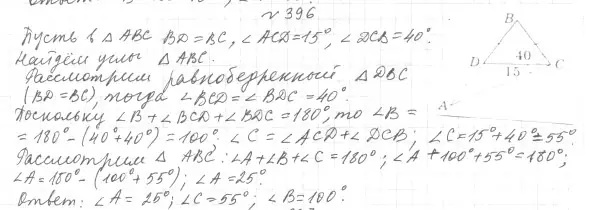 № 396
Пусть в △ ABC BD = BC, ∠ ACD = 15°, ∠ DCB = 40°.
Найдём углы △ ABC.
Рассмотрим равнобедренный △ DBC
(BD = BC), тогда ∠ BCD = ∠ BDC = 40°.
Поскольку ∠ B + ∠ BCD + ∠ BDC = 180°, то ∠ B =
= 180° - (40° + 40°) = 100°. ∠ C = ∠ ACD + ∠ DCB; ∠ C = 15° + 40° = 55°
Рассмотрим △ ABC: ∠ A + ∠ B + ∠ C = 180°; ∠ A + 100° + 55° = 180°;
∠ A = 180° - (100° + 55°); ∠ A = 25°.
Ответ: ∠ A = 25°; ∠ C = 55°; ∠ B = 100°.
B
D 40 C
15
A